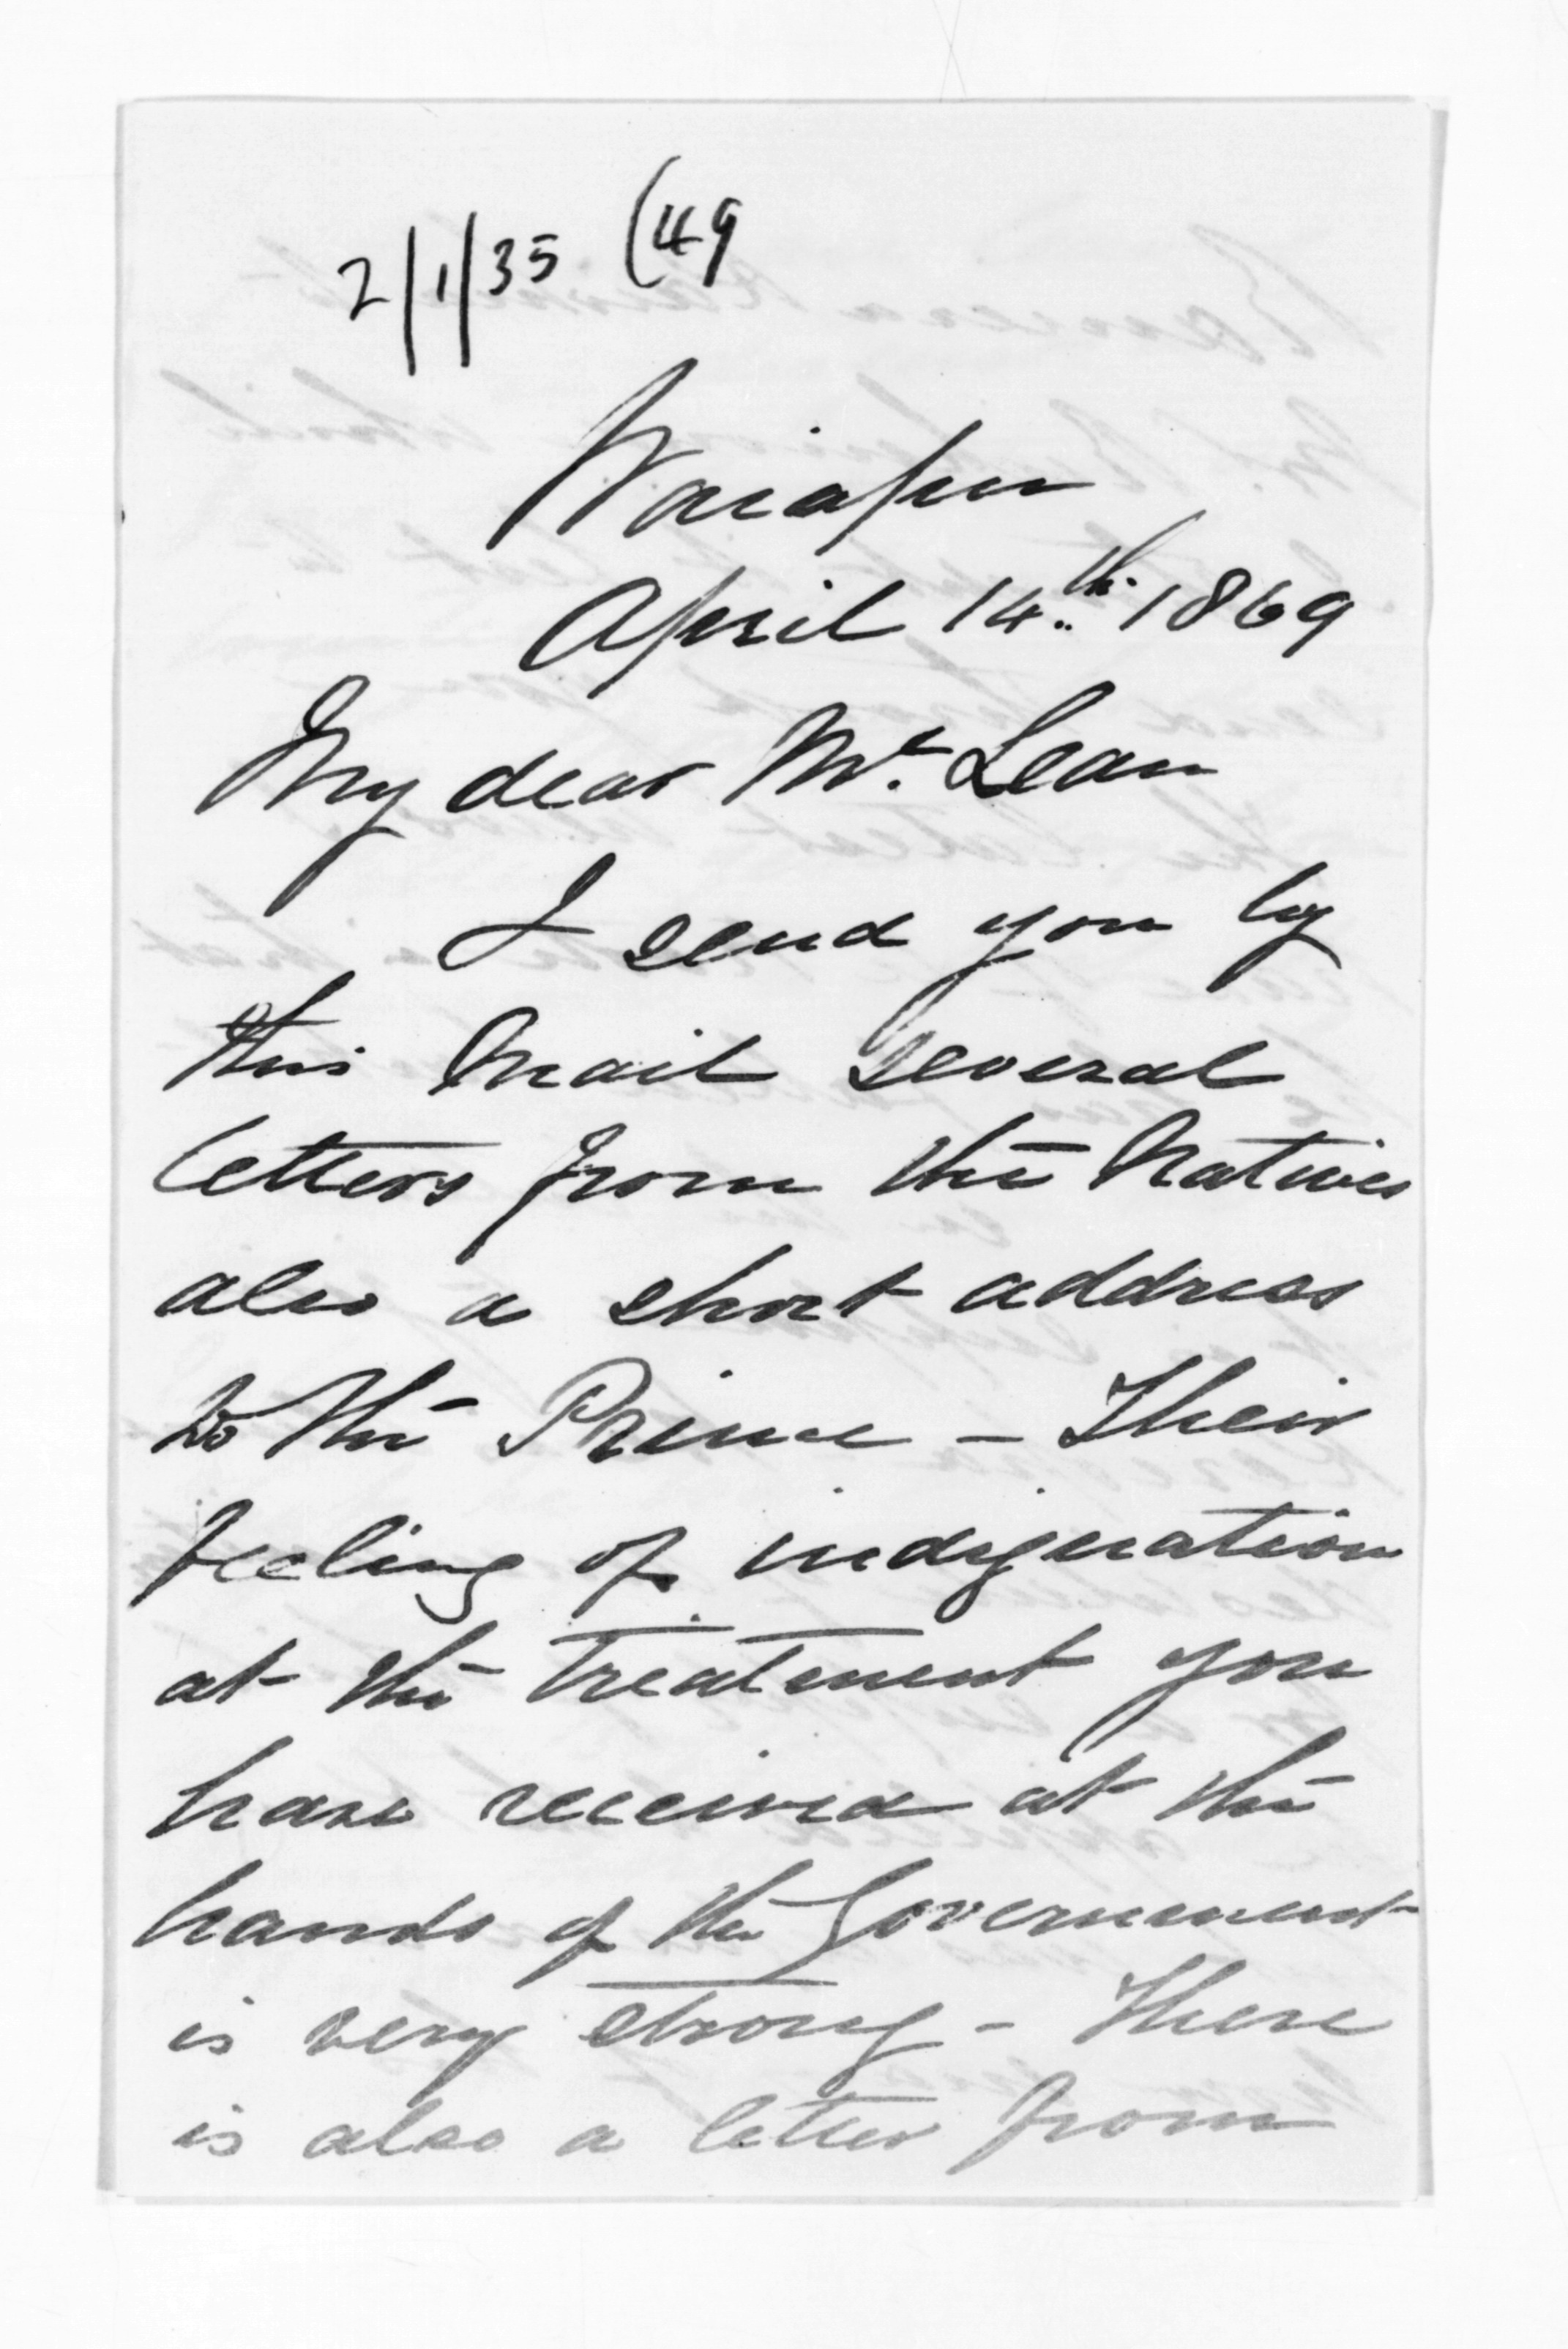 2/1/35 (49
Waiapu
April 14th. 1869
My dear Mc. Lean
I send you by
this Mail several
letters from the Natives
also a short address
to the Prince – Their
feeling of indignation
at the treatment you
have received at the
hands of the Government
is very strong – There
is also a letter from